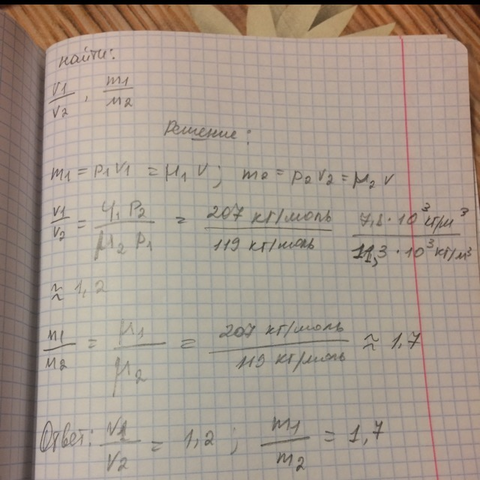 найти:
V1/V2, m1/m2
Решение:
m1 = ρ1V1 = μ1 ν; m2 = ρ2V2 = μ2 ν
V1/V2 = μ1 ρ2/μ2 ρ1 = 207 кг/моль/119 кг/моль 7,3 · 10³ кг/м³/11,3 · 10³ кг/м³
≈ 1,2
m1/m2 = μ1/μ2 = 207 кг/моль/119 кг/моль ≈ 1,7
Ответ: V1/V2 = 1,2; m1/m2 = 1,7